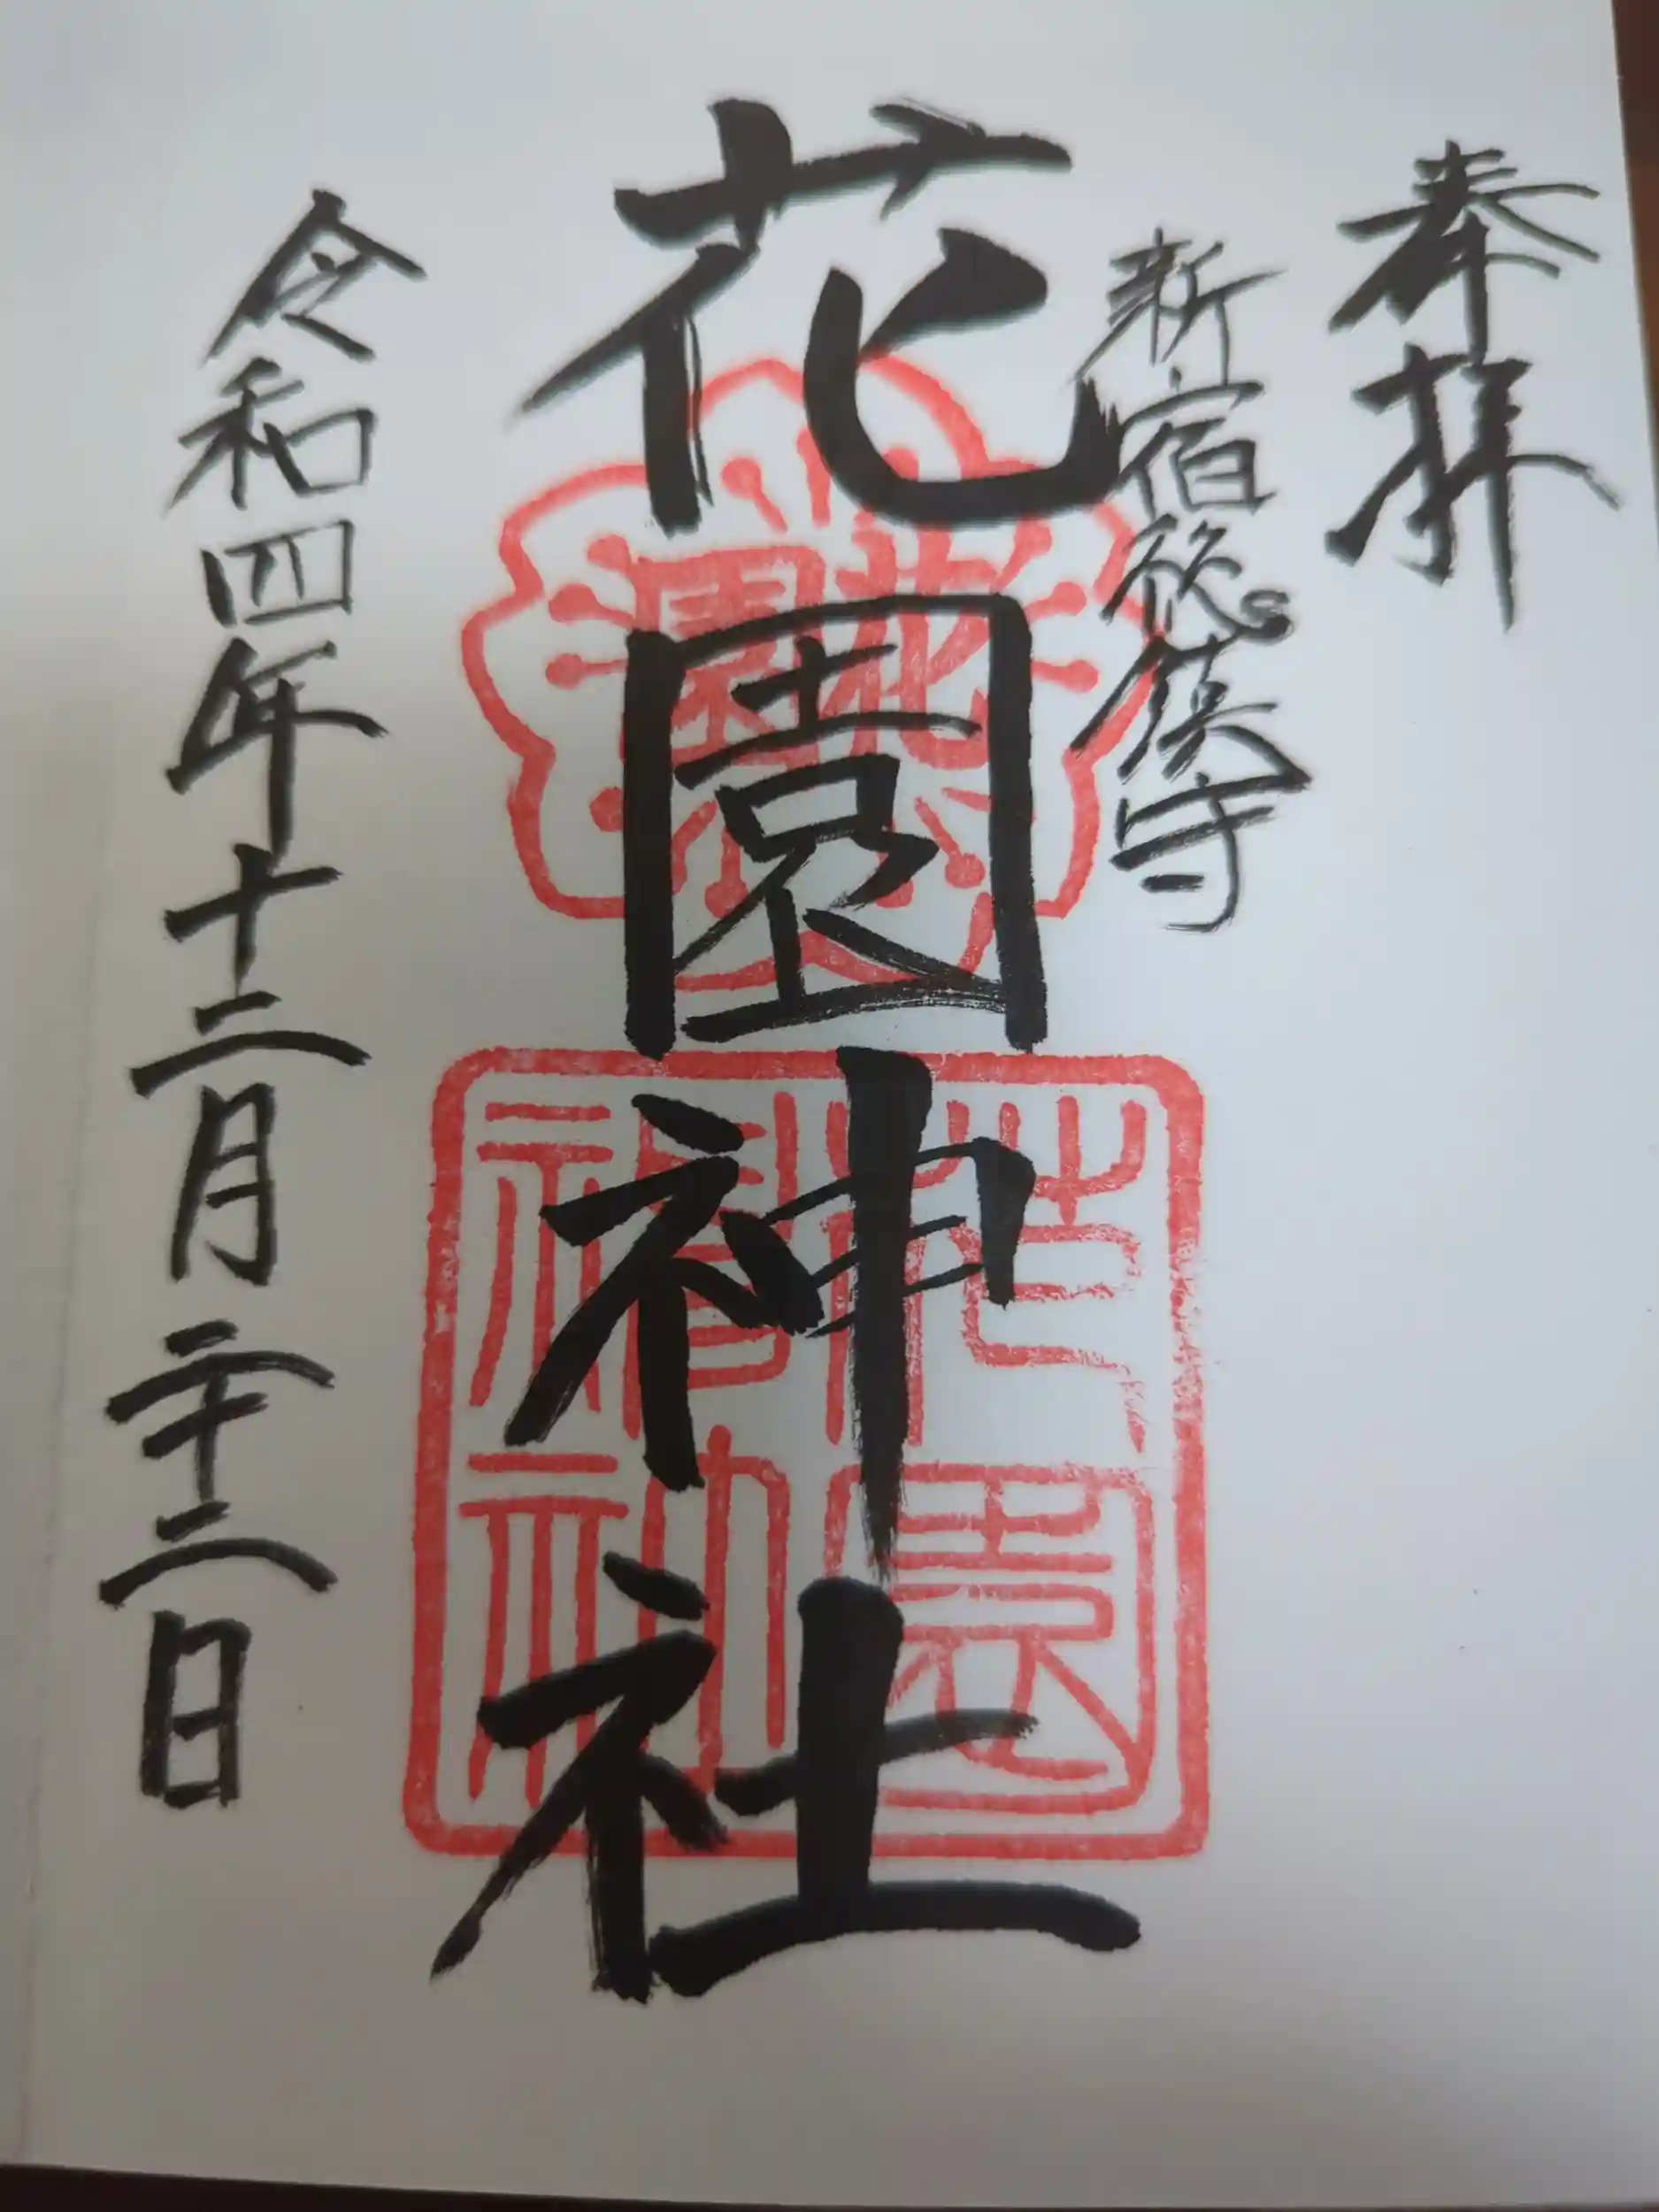 奉拝
新宿総鎮守
花園神社
花園
花園神社
令和四年十二月二十二日